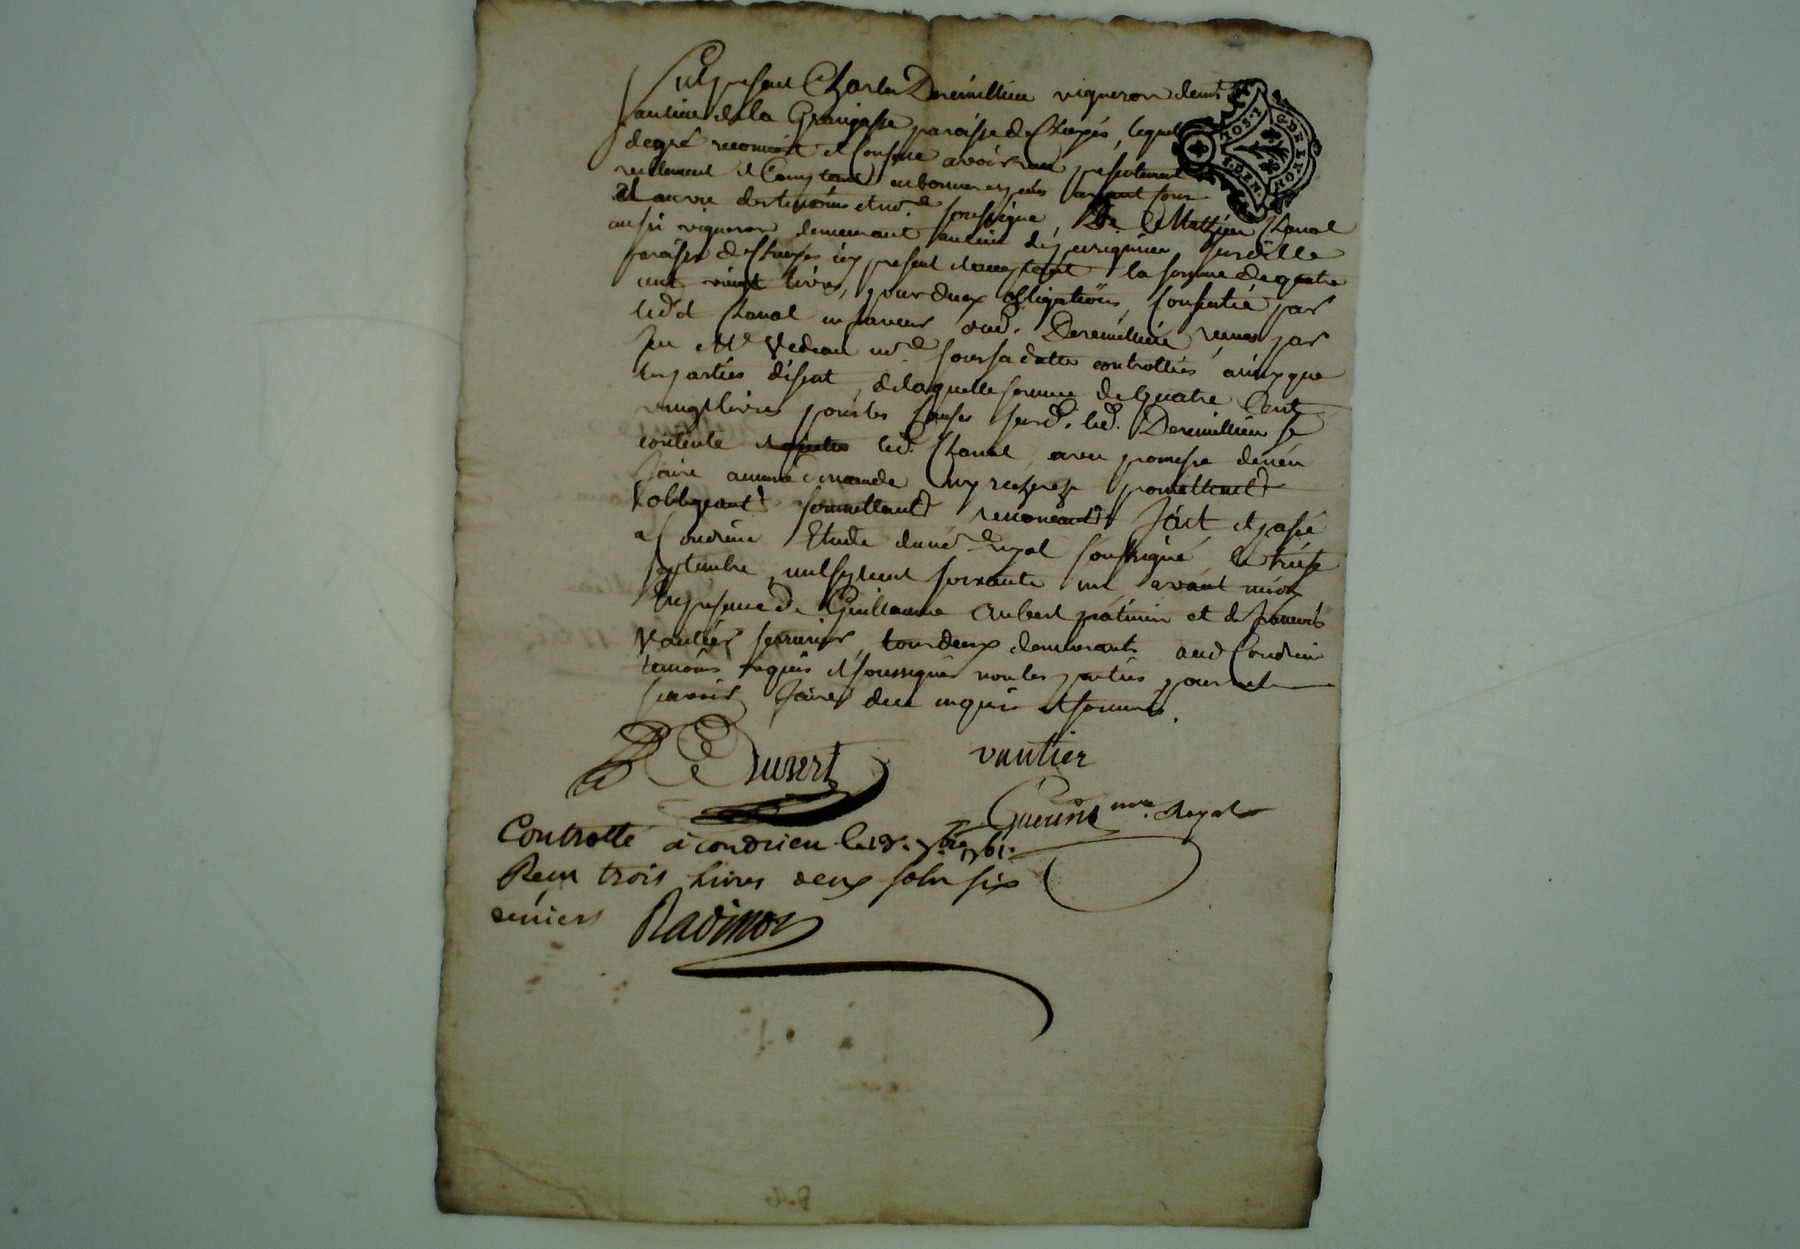 fut present Charles Deremillieu vigneron demt
au lieu de la Grangasse paroisse de Chuyés, lequel
de gré reconnoit et Confesse avoir reçu presentement
reellement et Comptant en bonnes espèces ayant cours
et au vu des temoins et nore soussigné, De Mathieu Chanal
aussi vigneron demeurant au lieu de
paroisse de Chuyes icy present et acceptant la somme de quatre
cent vingt livres, pour deux obligations, Consentie par
led. Chanal en faveur dud. Deremillieu reçues par
feu Me Vedeau nore sous sa datte controllées ainsy que
les parties disent, de laquelle somme de Quatre Cent
vingt livres pour les Causes susd. led. Deremillieu se
contente et quitte led. Chanal avec promesse de n'en
faire aucune demande ny recherche promettant
obligeant soumettant renonçant fait et passé
a Condrieu Etude dud nore royal soussigné le treise
septembre mil sept cent soixante un avant midy
En presence de Guillaume Aubert praticien et de François
Vautier serrurier, tous deux demeurants aud Condrieu
temoins requis et soussignés non les parties pour ne
scavoir faire de ce enquis et sommés.
vautier
nore. Royal
Controllé à condrieu le 18. 7bre 1761.
Reçu trois Livres deux sols six
deniers Radimon
G. DE LYON